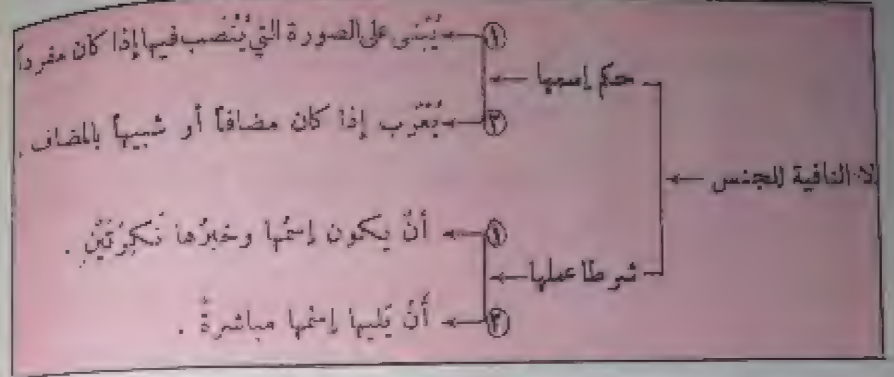 لا النافية للجنس
حكم إسمها
① يُبْنى على الصورة التي يُنْصب فيها إذا كان مفرداً
② يُعْرَب إذا كان مضافاً أو شبيهاً بالمضاف .
شرطا عملها
① أنْ يكون إسمُها وخبرُها نَكِرَتَيْنِ .
② أَنْ يَليها إسمُها مباشرةً .